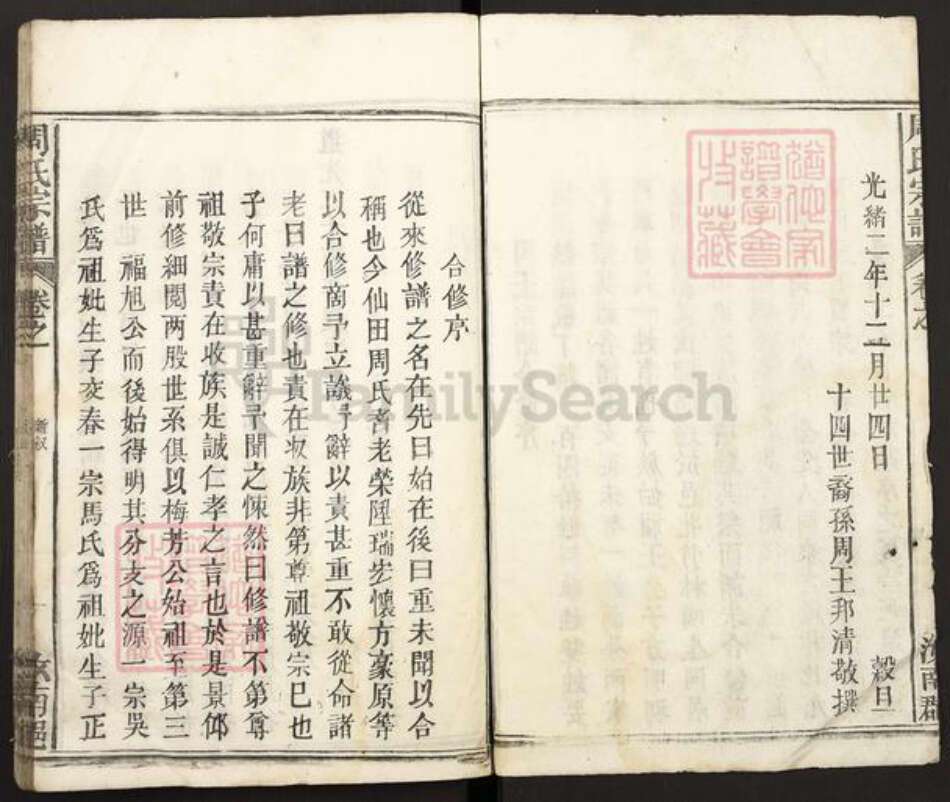 周氏宗譜
卷之
汝南郡
光緒二年十二月廿四日 穀旦
十四世裔孫周王邦清敬撰
合修序
從來修譜之名在先曰始在後曰重未聞以合
稱也今仙田周氏耆老榮陞瑞宏懷方豪原等
以合修商予立議予辭以責甚重不敢從命諸
老曰譜之修也責在收族非第尊祖敬宗已也
子何庸以甚重辭予聞之悚然曰修譜不第尊
祖敬宗責在收族是誠仁孝之言也於是景仰
前修細閱两股世系俱以梅芳公始祖至第三
世 福旭公而後始得明其分支之源一宗吳
氏爲祖妣生子交春一宗馬氏爲祖妣生子正
周氏宗譜
卷之一
FamilySearch